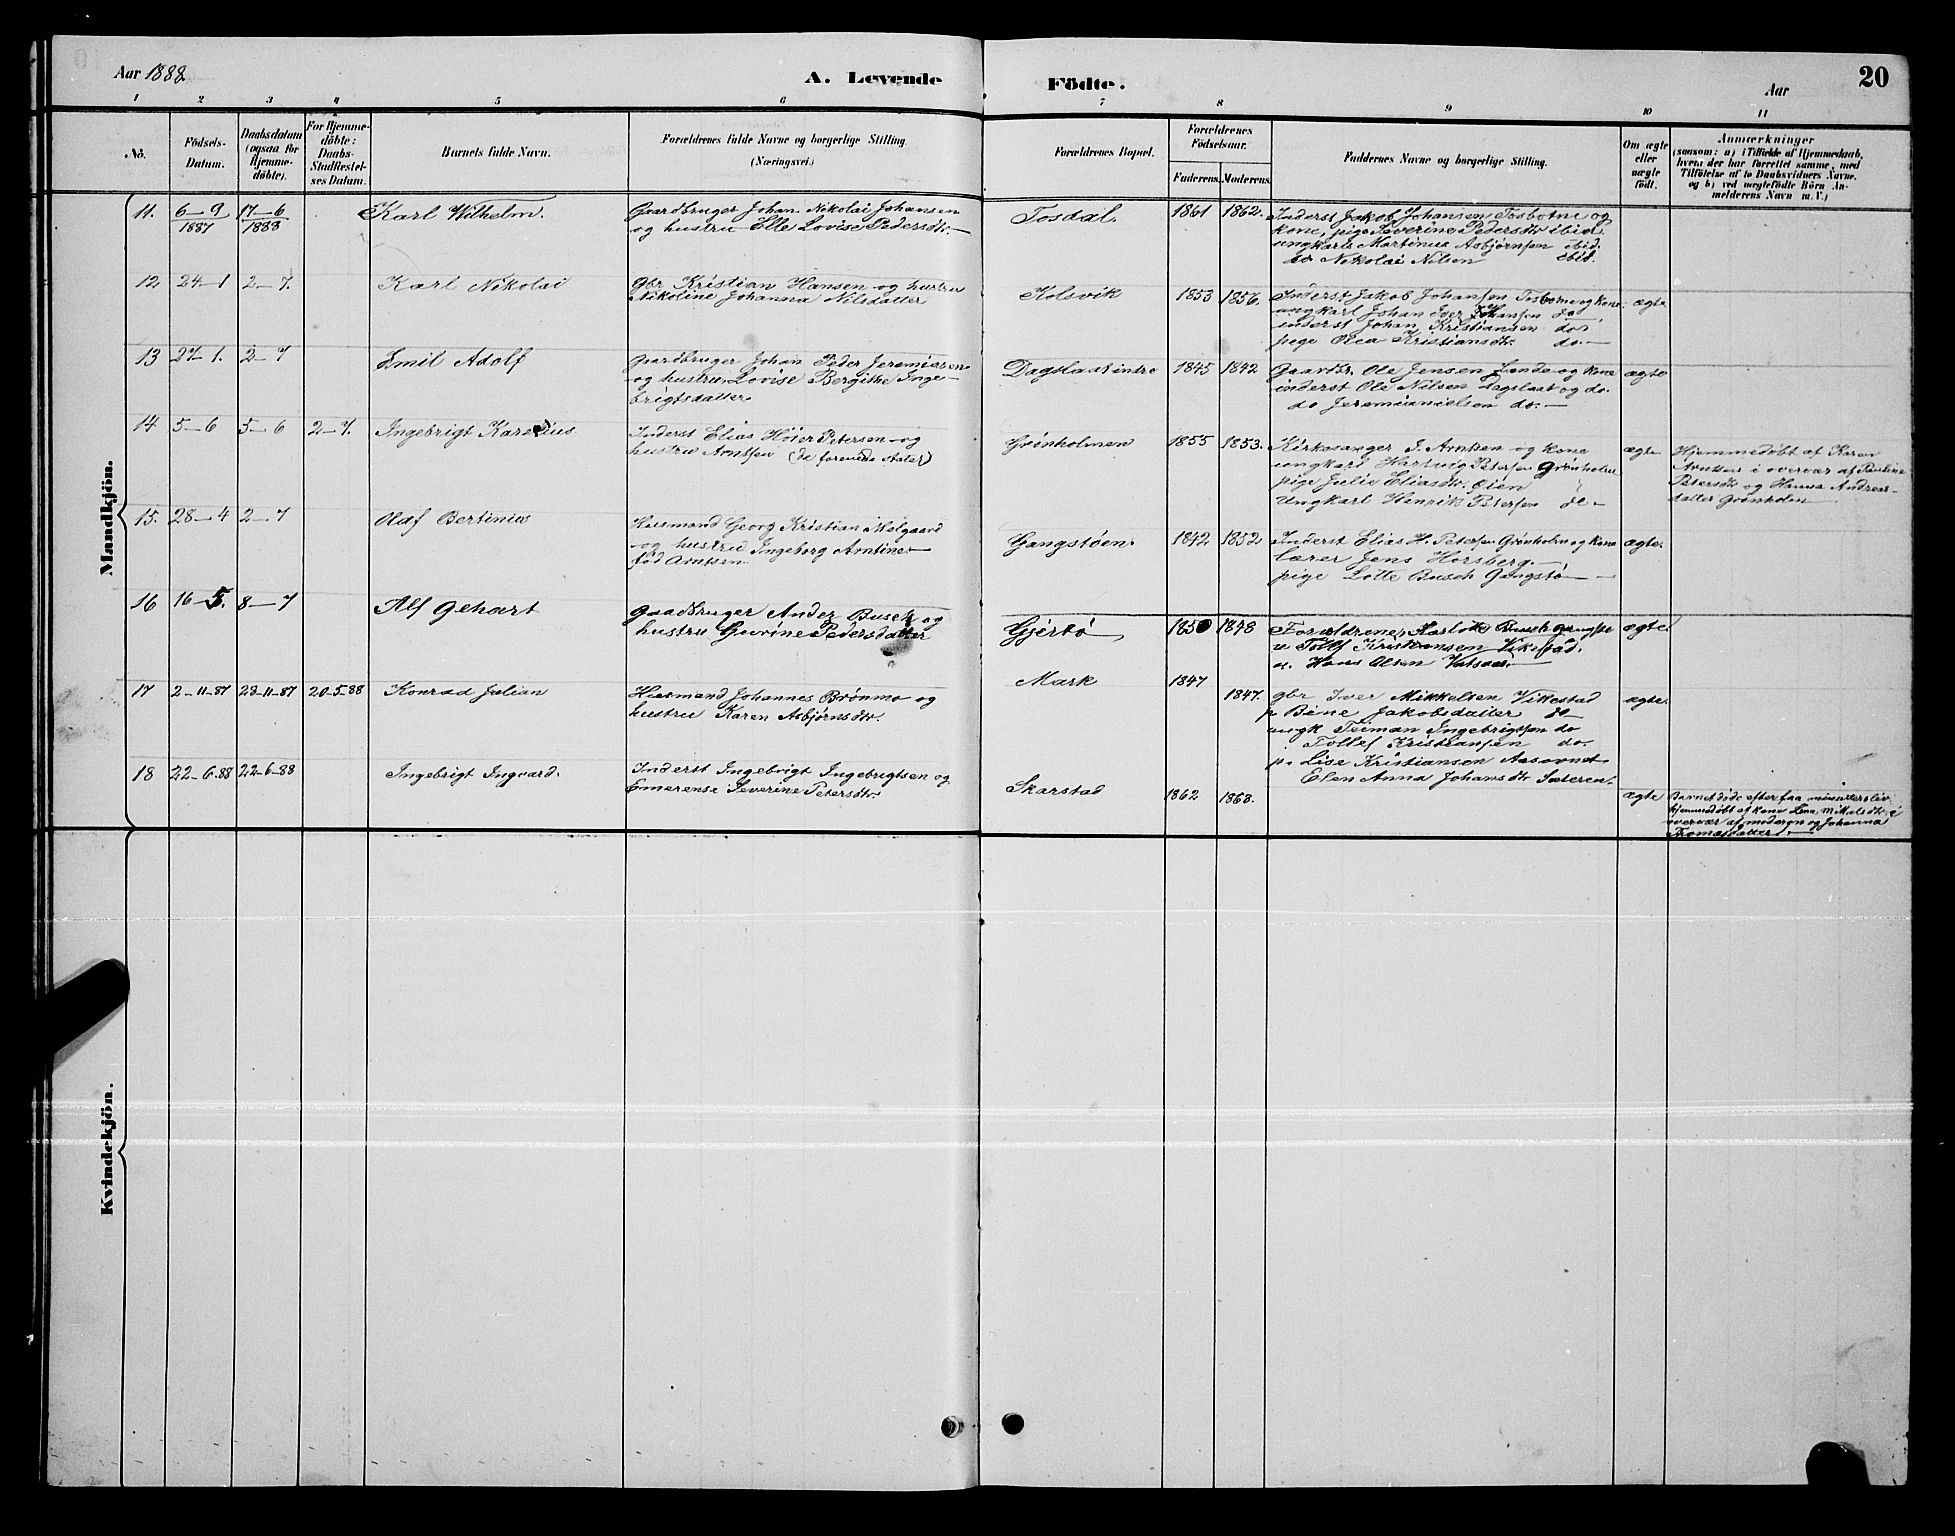 Aar 1888
A. Levende
Födte.
Aar
20
1 2 3 4 5 6 7 8 9 10 11
No.
Födsels-
Datum.
Daabsdatum
(ogsaa for
Hjemme-
döbte).
For Hjemme-
döbte:
Daabs-
Stadfæstel-
ses Datum.
Barnets fulde Navn.
Forældrenes fulde Navne og borgerlige Stilling
(Næringsvei.)
Forældrenes Bopæl.
Forældrenes
Födselsaar.
Faderens. Moderens.
Faddernes Navne og borgerlige Stilling.
Om ægte
eller
uægte
födt.
Anmærkninger
(saasom: a) i Tilfælde af Hjemmedaab,
hvem der har forrettet samme, med
Tilföielse af to Daabsvidners Navne.
og b) ved uægtefödte Börn An-
melderens Navn m. V.)
Mandkjön.
11. 6–9 1887 17–6 1888 Karl Wilhelm.
Gaardbruger Johan Nikolai Johansen
og hustru Elle Lovise Pedersdtr.
Tosdal 1861 1862.
Inderst Jakob Johansen Tosbotne og
kone, pige Severine Pedersdtr ibid
ungkarls Martinus Asbjørnsen ibid.
do Nikolai Nilsen ibid.
12 24–1 2–7. Karl Nikolai
Gbr Kristian Hansen og hustru
Nikoline Johanna Nilsdatter
Kolsvik 1853 1856.
Inderst Jakob Johansen Tosbotne og kone
ungkarl Johan Iver Johansen do
inderst Johan Kristiansen do
pige Olea Kristiansdtr. do
ægte
13 27–1. 2–7 Emil Adolf
Gaardbruger Johan Peder Jeremiasen
og hustru Lovise Bergithe Inge-
brigtsdatter
Dagslaat indre 1845 1842
Gaardbr. Ole Jensen Lande og kone
inderst Ole Nilsen Dagslaat og do.
do Jeremianielsen do.
ægte
14 5–6 5–6 2–7. Ingebrigt Karelius
Inderst Elias Høier Petersen og
hustru Arntsen (de forenede Stater)
Grønholmen 1855 1853.
Kirkesanger J. Arntsen og kone
ungkarl Hartvig Petersen Grønholm
pige Julie Eliasdtr. Øien
Ungkarl Henrik Petersen do
ægte
Hjemmedøbt af Karen
Arntsen i overvær af Pauline
Petersdtr og Hanna Andreas-
datter Grønholm
15. 28–4 2–7 Olaf Bertinius
Husmand Georg Kristian Melgaard
og hustru Ingeborg Arntine
fød Arntsen
Gangstøen 1842 1852
Inderst Elias H. Petersen Grønholm og kone
lærer Jens Horsberg.
pige Lotte Busch Gangstø
ægte.
16 16–5. 8–7 Alf Gehart
Gaardbruger Andez Busch og
hustru Guvine Pedersdatter
Gjertø 1850 1848
Forældrene, Busch
Tollf Kristiansen Vikestad.
u. Hans Olsen
ægte
17 2–11–87 28–11–87 20–5–88 Konrad Julian
Husmand Johannes Brønmo og
hustru Karen Asbjørnsdtr.
Mark 1847 1847.
gbr Iver Mikkelsen Vikestad
p Bine Jakobsdatter do
ungk Tseman Ingebrigtsen do
Tollef Kristiansen do.
p. Lise Kristiansen Aasavnet
Elen Anna Johansdtr Sæteren
ægte.
18 22–6–88 22–6–88 Ingebrigt Ingvard.
Inderst Ingebrigt Ingebrigtsen og
Emerense Severine Petersdtr.
Skarstad 1862 1868.
ægte
Barnet døde efter faa minutters liv
hjemmedøbt af kone Lena Mikalsdtr. i
overvær af moderen og Johanna
Thomasdatter
Kvindekjön.